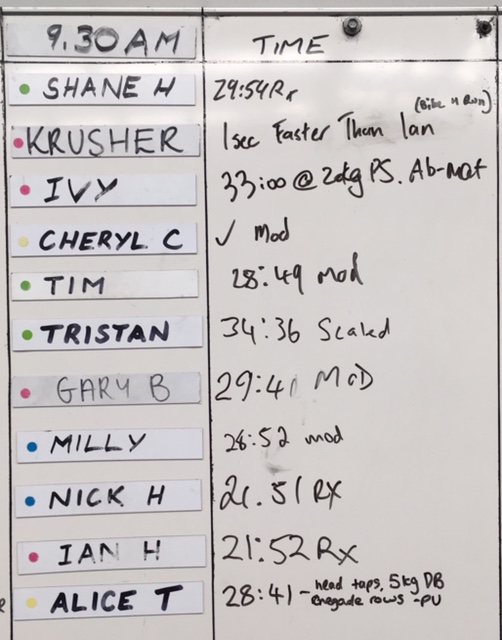 9.30 AM TIME
SHANE H 29:54 Rx
KRUSHER 1sec Faster Than Ian (Bike & Run)
IVY 33:00 @ 20kg PS. Ab-mat
CHERYL C ✓ Mod
TIM 28:49 mod
TRISTAN 34:36 Scaled
GARY B 29:41 MOD
MILLY 28:52 mod
NICK H 21.51 RX
IAN H 21:52 Rx
ALICE T 28:41 - head taps, 5kg DB
renegade rows - PU